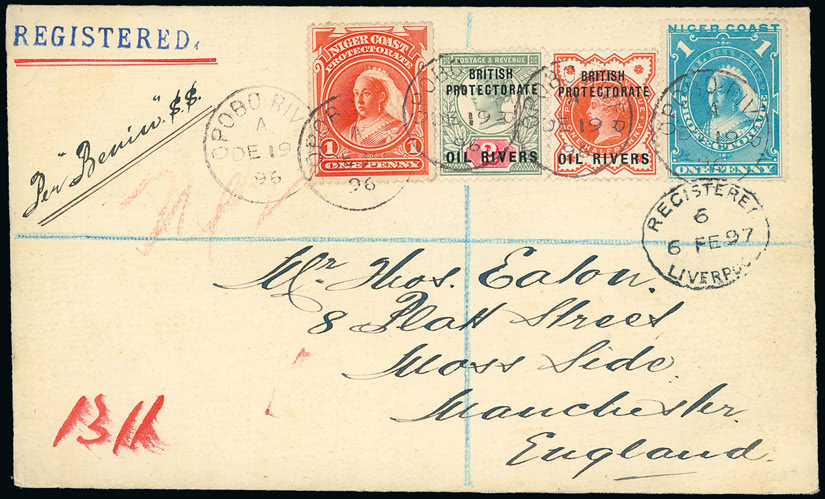 REGISTERED.
Per "Benin" S.S.
OPOBO RIV
A
DE 19
96
NIGER COAST
PROTECTORATE
1 1
ONE PENNY
A
96
POSTAGE & REVENUE
BRITISH
PROTECTORATE
OIL RIVERS
DE 19
96
BRITISH
PROTECTORATE
OIL RIVERS
A
19
NIGER COAST
1 1
PROTECTORATE
ONE PENNY
REGISTERED
6
6 FE 97
LIVERPOO
Mr Thos. Eaton.
8 Platt Street
Moss Side
Manchester
England.